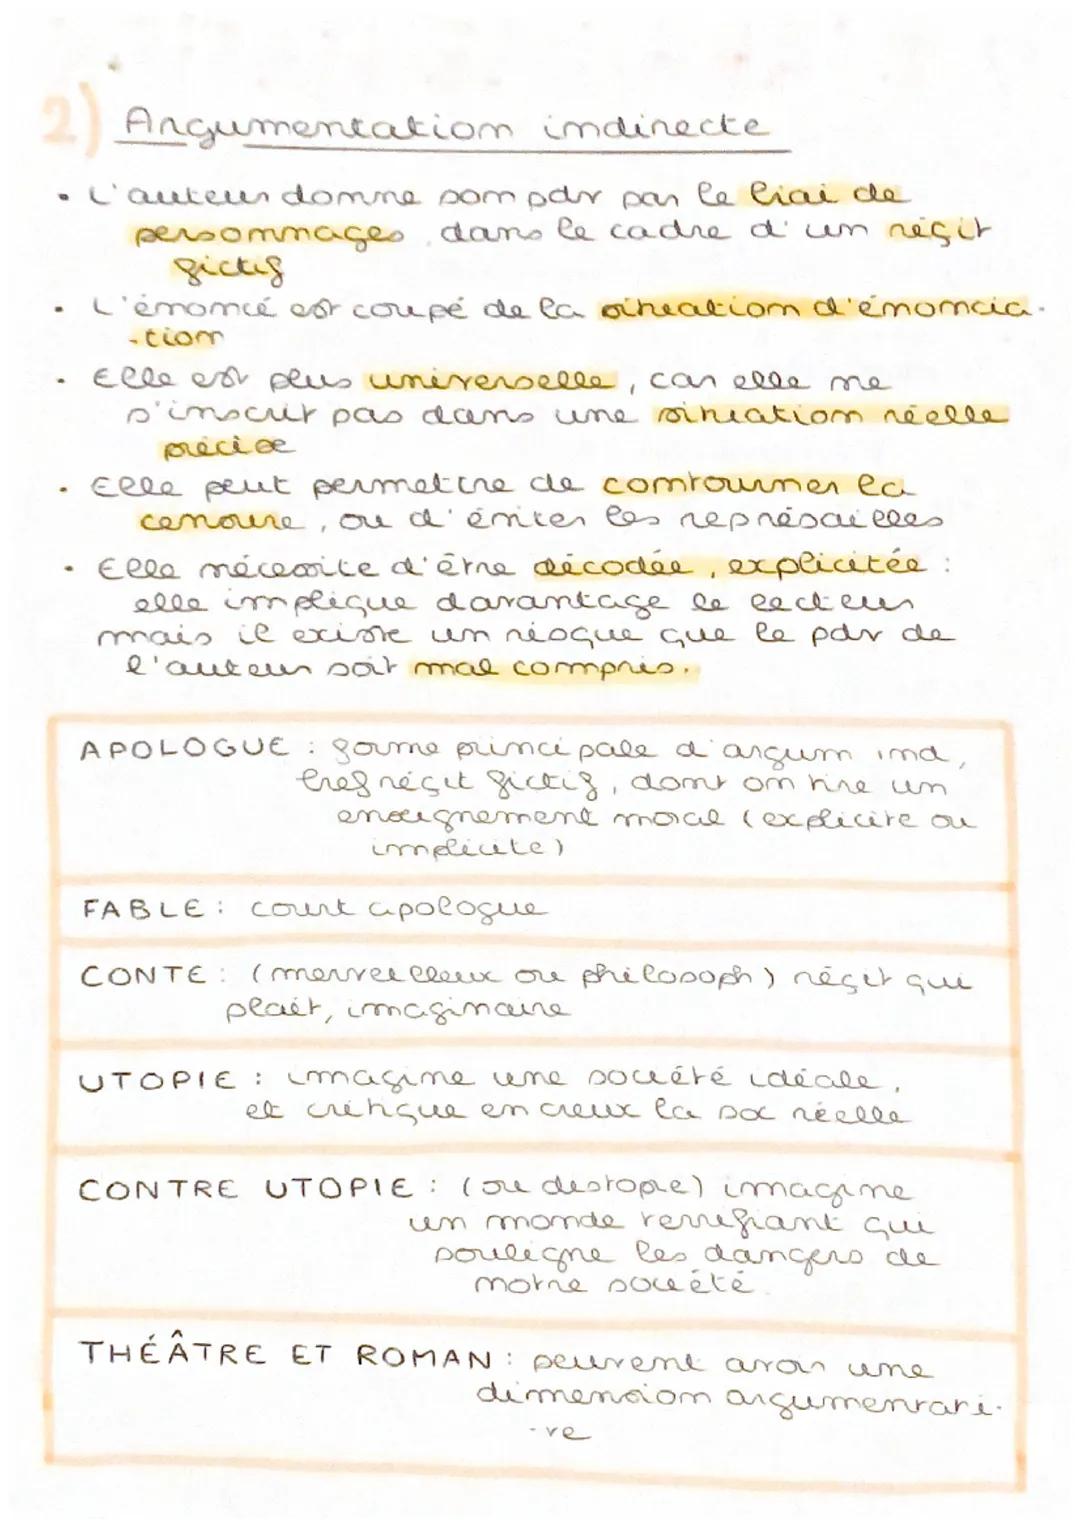 2) Argumentation indirecte
• L'auteur donne son pdv par le biai de
personnages dans le cadre d'un récit
fictif
• L'énoncé est coupé de la situation d'énoncia-
-tion
• Elle est plus universelle, car elle ne
s'inscrit pas dans une situation réelle
précise
• Elle peut permettre de contourner la
censure, ou d'éviter les représailles
• Elle nécessite d'être décodée, explicitée :
elle implique davantage le lecteur
mais il existe un risque que le pdv de
l'auteur soit mal compris.
APOLOGUE : forme principale d'argum ind,
bref récit fictif, dont on tire un
enseignement moral (explicite ou
implicite)
FABLE : court apologue
CONTE : (merveilleux ou philosoph) récit qui
plaît, imaginaire
UTOPIE : imagine une société idéale,
et critique en creux la soc réelle
CONTRE UTOPIE : (ou destopie) imagine
un monde terrifiant qui
souligne les dangers de
notre société.
THÉÂTRE ET ROMAN : peuvent avoir une
dimension argumentati-
-ve